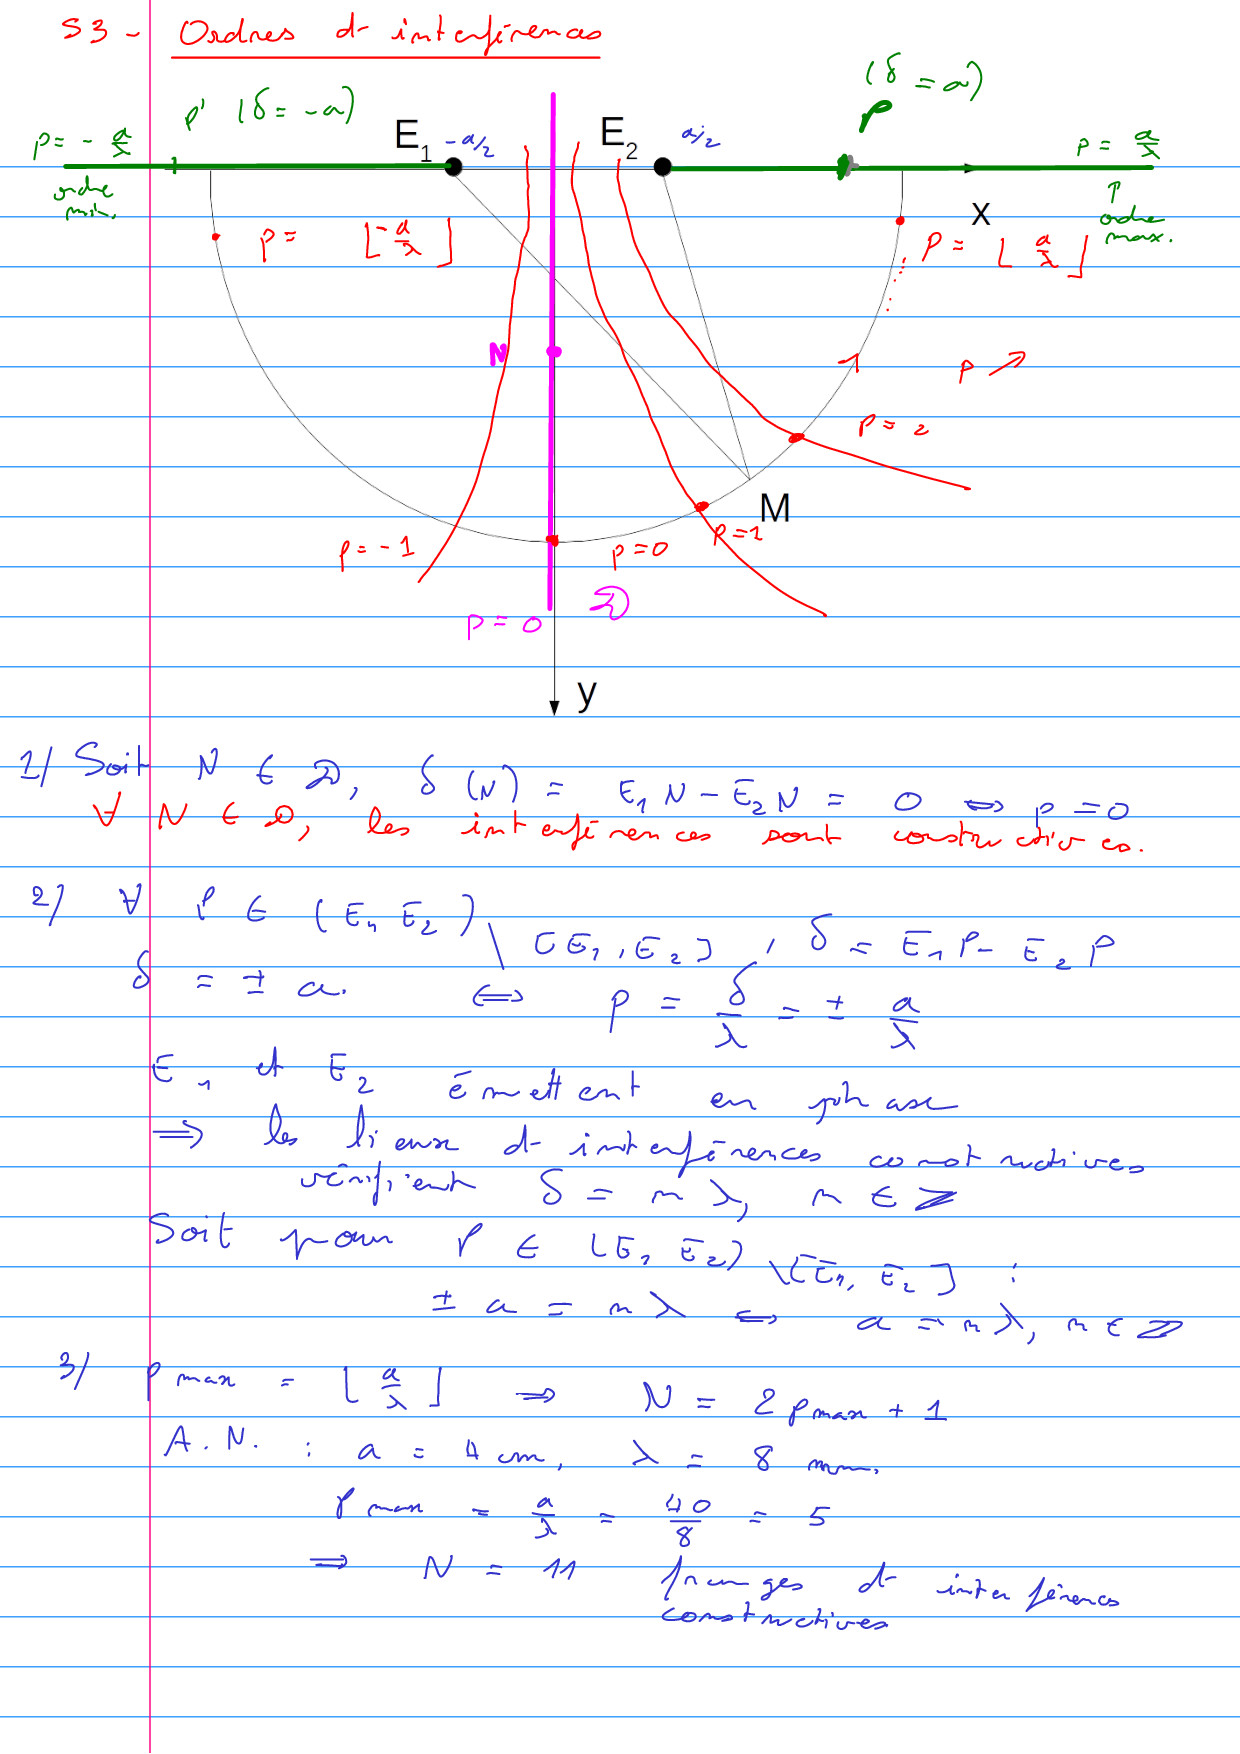 S3 - Ordres d'interférences
(δ = a)
p' (δ = -a)
P
E₁ -a/2
E₂ a/2
p = - a/λ
p = a/λ
ordre min.
x
ordre max.
p = ⌊-a/λ⌋
p = ⌊a/λ⌋
N
p ↗
p = 2
M
p = -1
p = 0
p = 1
D
p = 0
y
1/ Soit N ∈ D, δ(N) = E₁N - E₂N = 0 ⇔ p = 0
∀ N ∈ D, les interférences sont constructives.
2/ ∀ P ∈ (E₁ E₂) \ [E₁, E₂], δ = E₁P - E₂P
δ = ± a. ⇔ p = δ/λ = ± a/λ
E₁ et E₂ émettent en phase
⇒ les lieux d'interférences constructives
vérifient δ = nλ, n ∈ ℤ
Soit pour P ∈ (E₁ E₂) \ [E₁, E₂] :
± a = nλ ⇔ a = nλ, n ∈ ℤ
3/ p max = ⌊a/λ⌋ ⇒ N = 2 p max + 1
A.N. : a = 4 cm, λ = 8 mm.
p max = a/λ = 40/8 = 5
⇒ N = 11 franges d'interférences
constructives